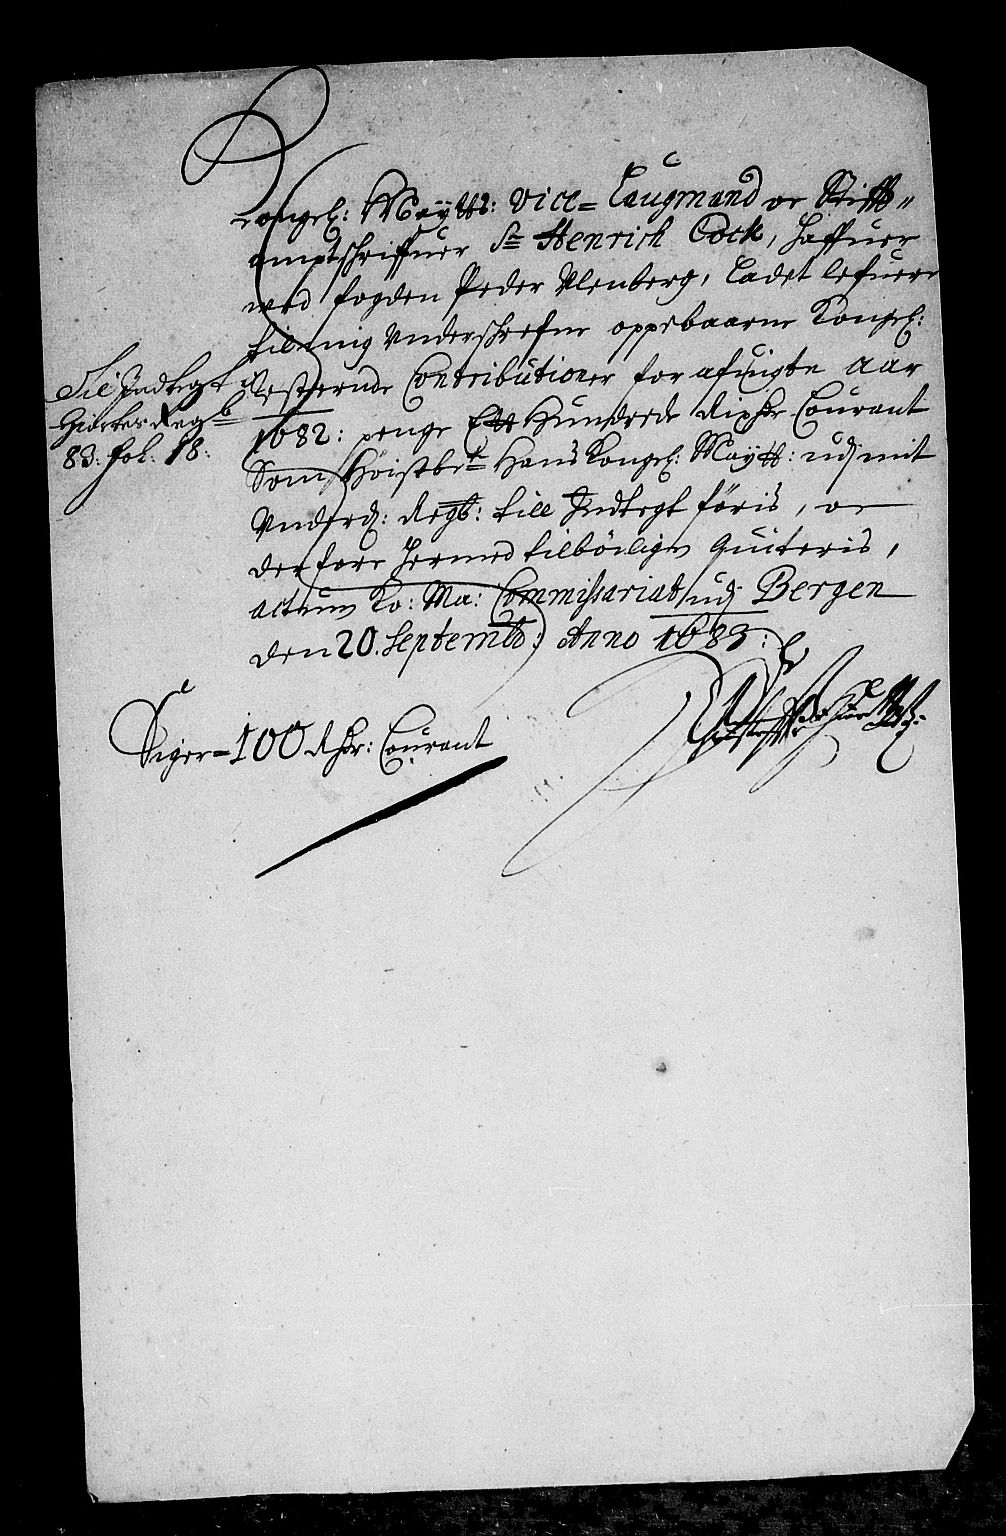 Kongel: Maytts: Vice= Laugmand oc Stiffts
amptschriffuer Sr Henrich Cock, Haffuer
wed fogden Peder Ulenberg, Ladet lefuere
til mig Underschrefne oppebaarne Kongel:
Resterende Contributioner for afuigte Aar
1682: penge Ett Hundrede Rixdr Courant
Som Höistbete Hans Kongel: Maytt: udj mit
Underd: Regb: till Indtegt föris, oc
derfore hermed tilbörligen quiteris,
actum Ko: Ma: Commissariat udj Bergen
den 20. Septembr: Anno 1683:
Til Indtegt i
Giortes Regb
83. fol. 18:
Siger= 100 Rdr: Courant